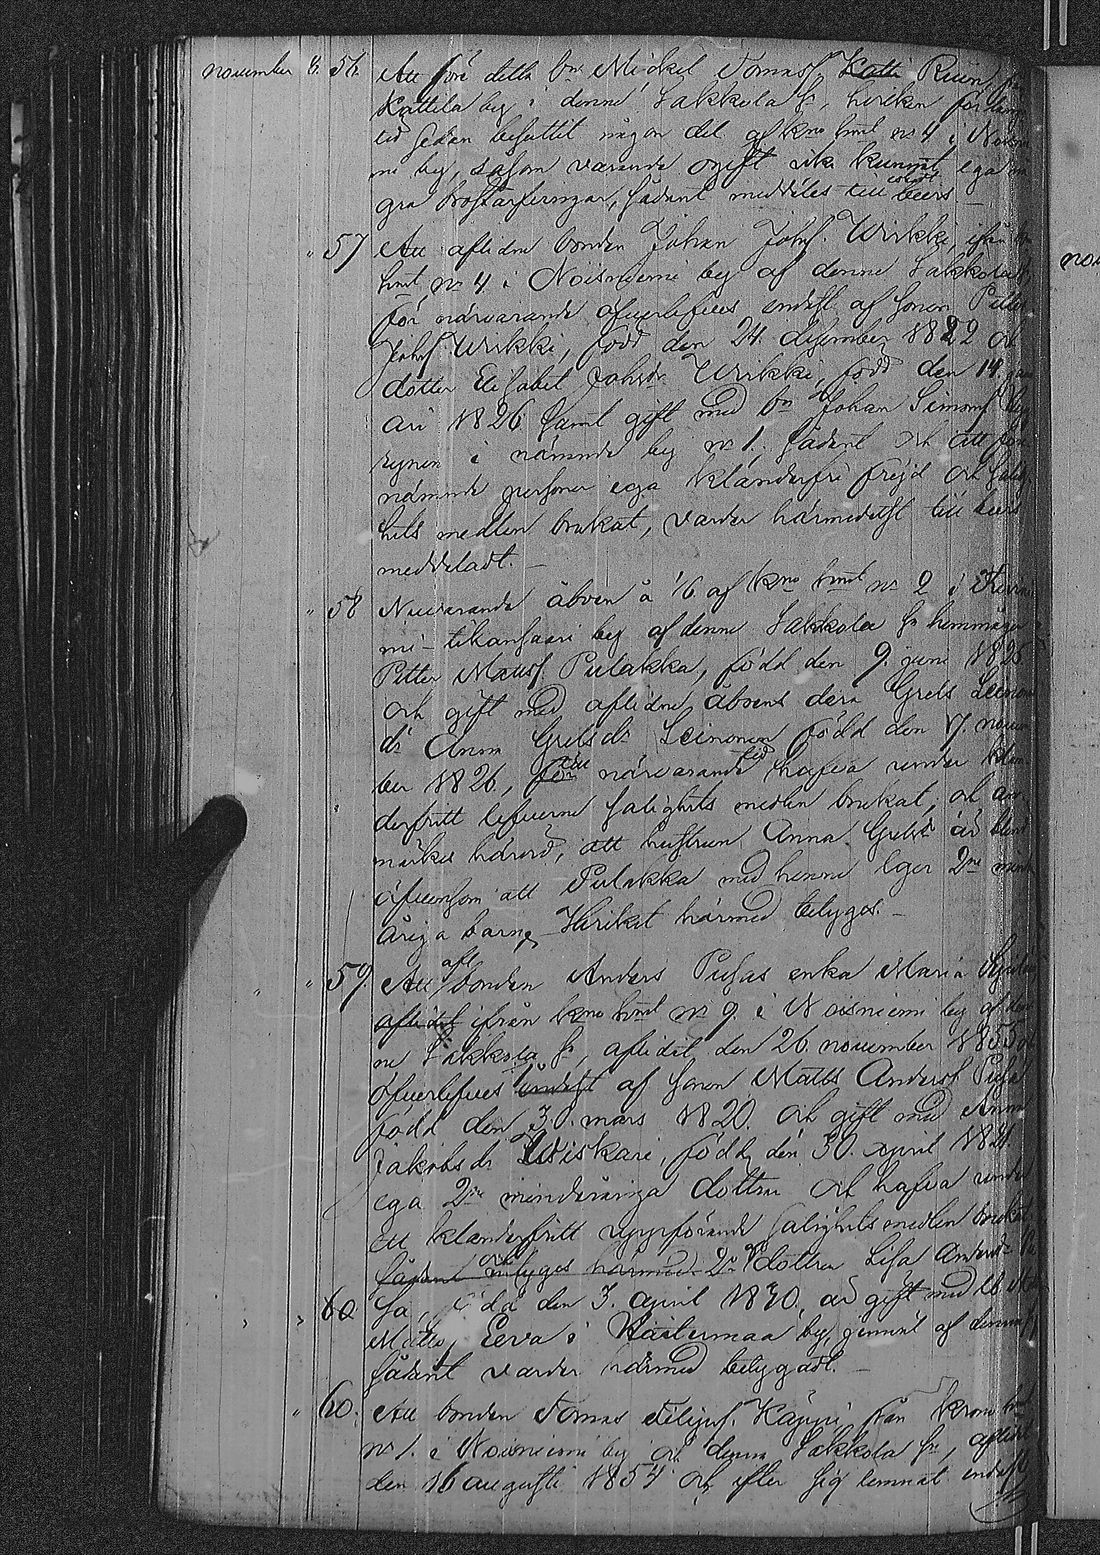 november 8. 56. Att före detta bn Mickel Tomasf. Katti Ruun, 
Kattila by i denne Sakkola sn, hvilken för lång
tid sedan besuttit någon del af kno hmt no 4 i Noisni
mi by, såsom varande ogift icke kunnat ega nå
gra bröstarfvingar, sådant meddeles till bevis. –
" 57 Att aflidne bonden Johan Johsf. Wirkki, ifrån
hmt no 4 i Noisniemi by af denne Sakkola sn,
för närvarande öfverlefves endast af sonen Petter
Johsf. Wirkki, född den 24. december 1822 och
dotter Elisabet Johsdr Wirkki, född den 14 janu
ari 1826 samt gift med bn Johan Simonsf.
rynen i nämnde by no 1. sådant och att för
nämnde personer ega klanderfri frejd och salig
hets medlen brukat, varder härmedelst till bevis
meddeladt. –
" 58 Nuvarande åboen å 1/6 af kno hmt no 2 i
mi-tikansaari by af denne Sakkola sn hemmågen
Petter Mattsf. Pulakka, född den 9. juni 1825
och gift med aflidne åboens dera Grels Leinonen
dr Anna Grelsdr Leinonen född den 17. novem
ber 1826, för till närvarande tid hafva under klan
derfritt lefverne salighets medlen brukat, och an
märkes härvid, att hustrun Anna Grelsdr är blind
äfvensom att Pulakka med henne eger 2ne minder
åriga barn, Hvilket härmed betygas. –
" 59. Att afl bonden Anders Pusas enka Maria
aflidit ifrån kno hmt no 9. i Noisniemi by af den
ne Sakkola sn, aflidit den 26. november 1855 och
öfverlefves endast af sonen Matts Andersf. Pusa
född den 30. mars 1820. och gift med Anna
Jakobsdr Wiskari, född den 30. april 1821.
ega 2ne minderåriga döttrar och hafva under
ett klanderfritt uppförande salighets medlen brukat,
sådant betygas härmed. Dr och dottren Lisa Andersdr Pu
" 60 sa, född den 3. april 1830, är gift med
Matts Eeva i Haitermaa by, gemmt af denna sn
sådant varder härmed betygadt. –
" 60. Att bonden Tomas Filipsf. Käppi från krono hmt
no 1. i Noisniemi by och denna Sakkola sn, aflidit
den 16 augusti 1854 och efter sig lemnat endast